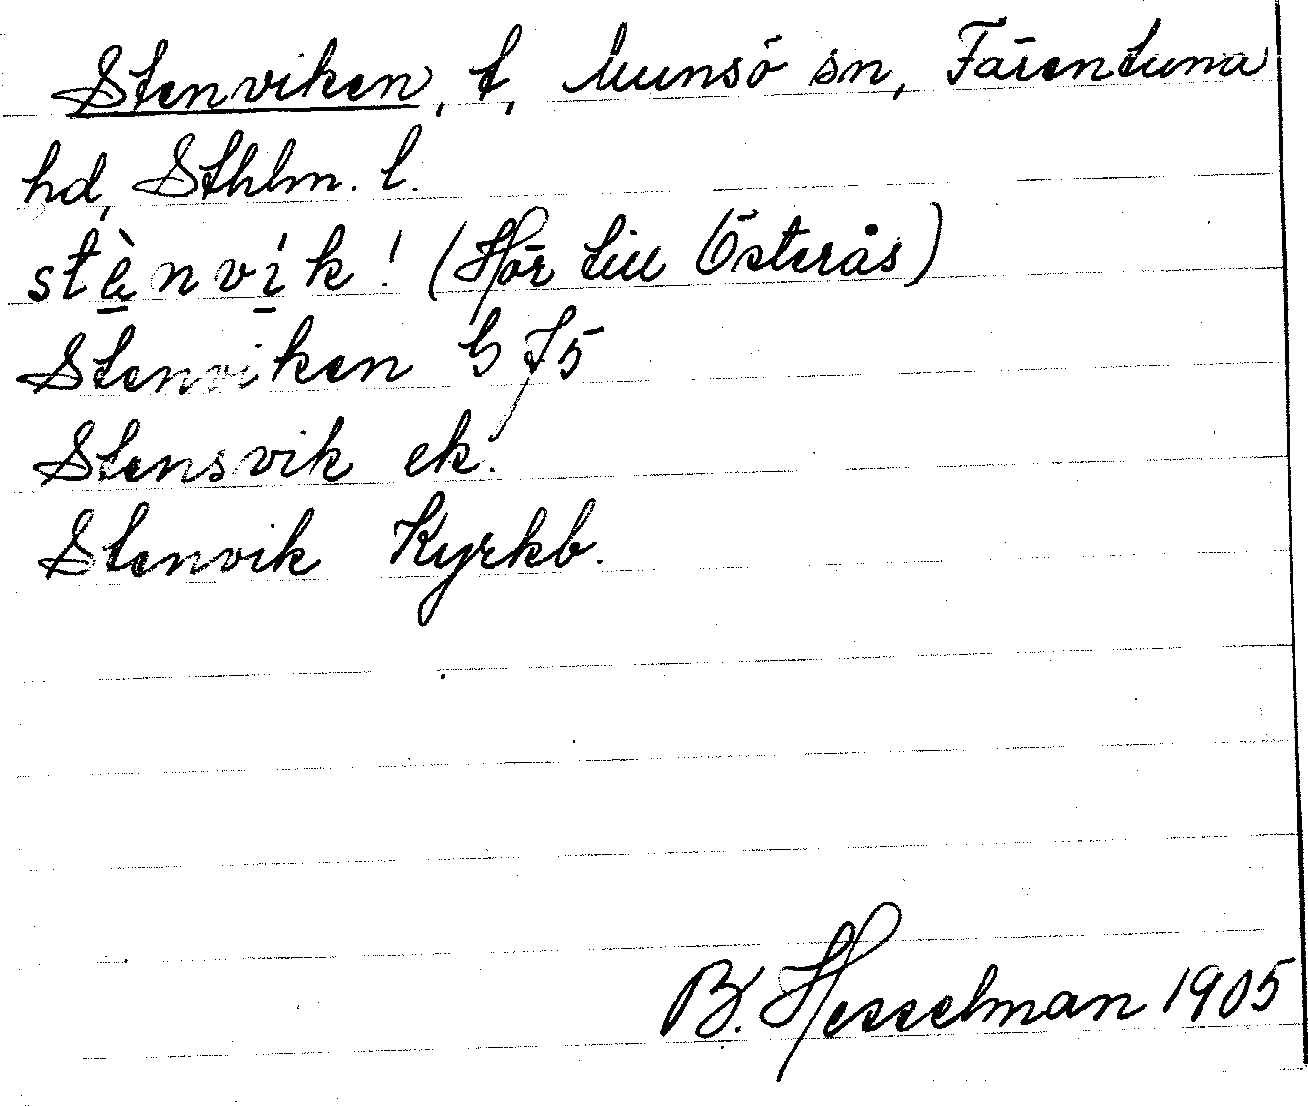 Stenviken, t, Munsö sn, Färentuna
hd, Sthlm. l.
stènvík! (Hör till Österås)
Stenviken G 75
Stensvik ek.
Stenvik Kyrkb.
B. Hesselman 1905